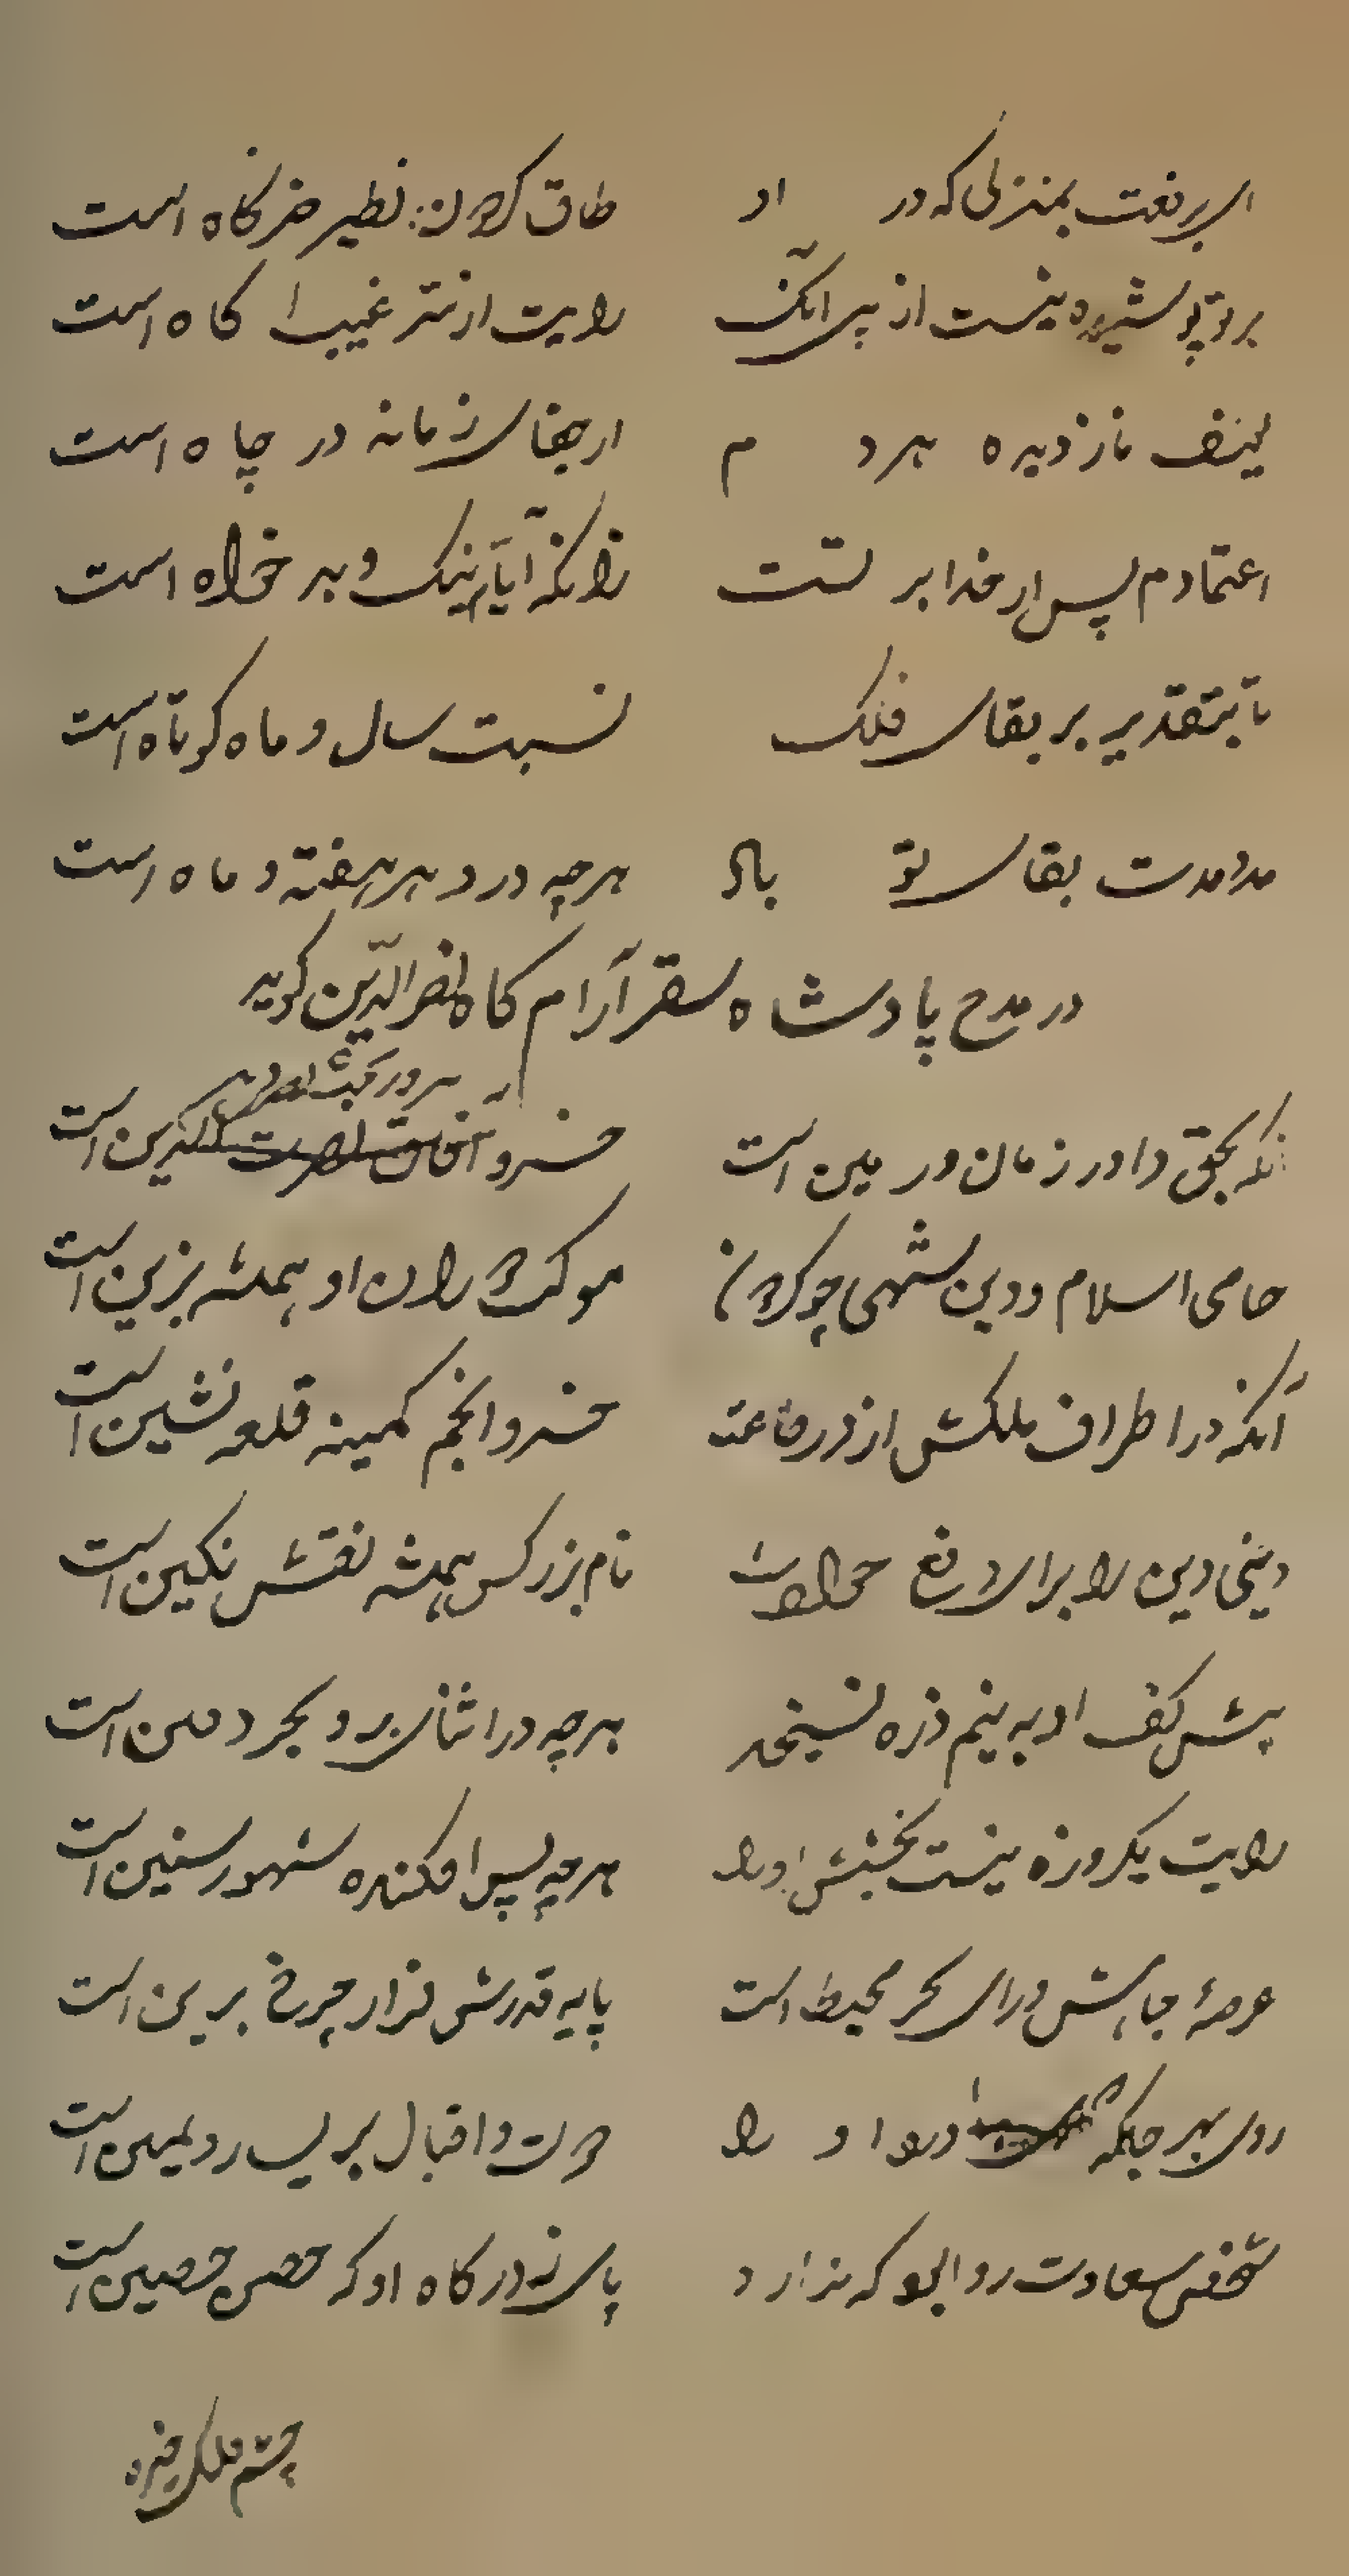 ای برفعت بمنزلی که در او طاق گردون نظیر خرگاه است
بر تو پوشیده نیست از پی آنک رایت از سر غیب آگاه است
لیتف نازدیده هر دم از جفای زمانه در چاه است
اعتمادم پس از خدا بر تست زانکه آیام نیک و بد خواه است
تا بتقدیر بر بقای فلک نسبت سال و ماه کوتاه است
مدد مدت بقای تو باد هرچه در دهر هفته و ماه است
در مدح پادشاه سقر آرام گاه نصر الدّین گوید
آنکه بحق داور زمان و زمین است خسرو آفاق نصرت الدین است
سرور بخشنده
حامی اسلام و دین شهی چو گردون موکب گردون او همیشه بزین است
آنکه در اطراف ملکش از در رفاعت خسرو انجم کمینه قلعه نشین است
دینی و دین را برای دفع حوادث نام بزرگش همیشه نقش نگین است
پیش کف او به نیم ذره نسنجد هرچه در اثنای بر و بحر دفین است
رایت یکروزه نیست بخشش او را هرچه پس افکنده شهور و سنین است
عرصهٔ جاهش ورای بحر محیط است پایه قدرش فراز چرخ برین است
روی بهر جا که او را دولت و اقبال بر یسار و یمین است
شخص سعادت روا بود که ندارد پای ز درگاه او که حصن حصین است
چشم ملک خسرو